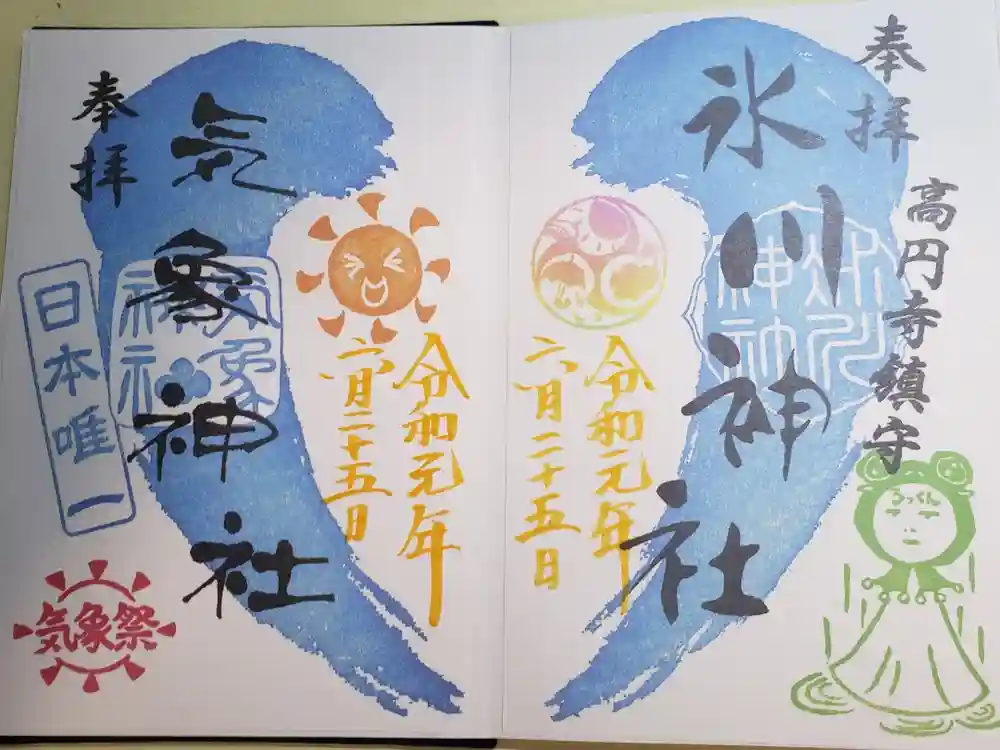 奉拝
高円寺鎮守
氷川神社
令和元年
六月二十五日
るっくん
奉拝
気象神社
気象神社
日本唯一
令和元年
六月二十五日
気象祭